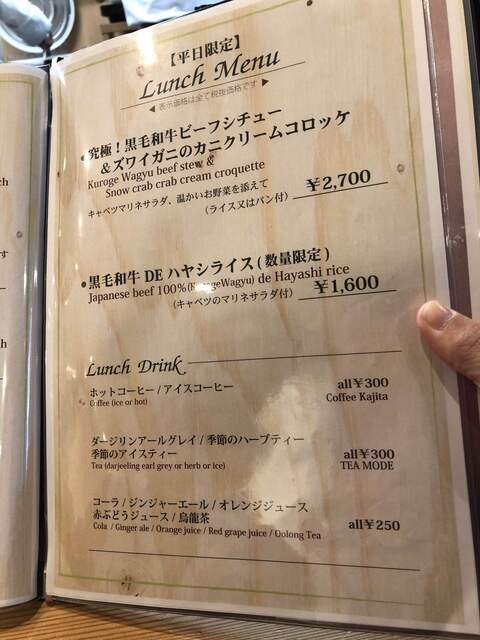 【平日限定】
Lunch Menu
◀ 表示価格は全て税抜価格です ▶
●究極！黒毛和牛ビーフシチュー
＆ズワイガニのカニクリームコロッケ
Kuroge Wagyu beef stew &
Snow crab crab cream croquette
¥2,700
キャベツマリネサラダ、温かいお野菜を添えて
（ライス又はパン付）
●黒毛和牛 DE ハヤシライス（数量限定）
Japanese beef 100%(KurogeWagyu) de Hayashi rice
（キャベツのマリネサラダ付）
¥1,600
Lunch Drink
ホットコーヒー / アイスコーヒー
all¥300
Coffee (ice or hot)
Coffee Kajita
ダージリンアールグレイ / 季節のハーブティー
季節のアイスティー
all¥300
Tea (darjeeling earl grey or herb or ice)
TEA MODE
コーラ / ジンジャーエール / オレンジジュース
赤ぶどうジュース / 烏龍茶
all¥250
Cola / Ginger ale / Orange juice / Red grape juice / Oolong Tea